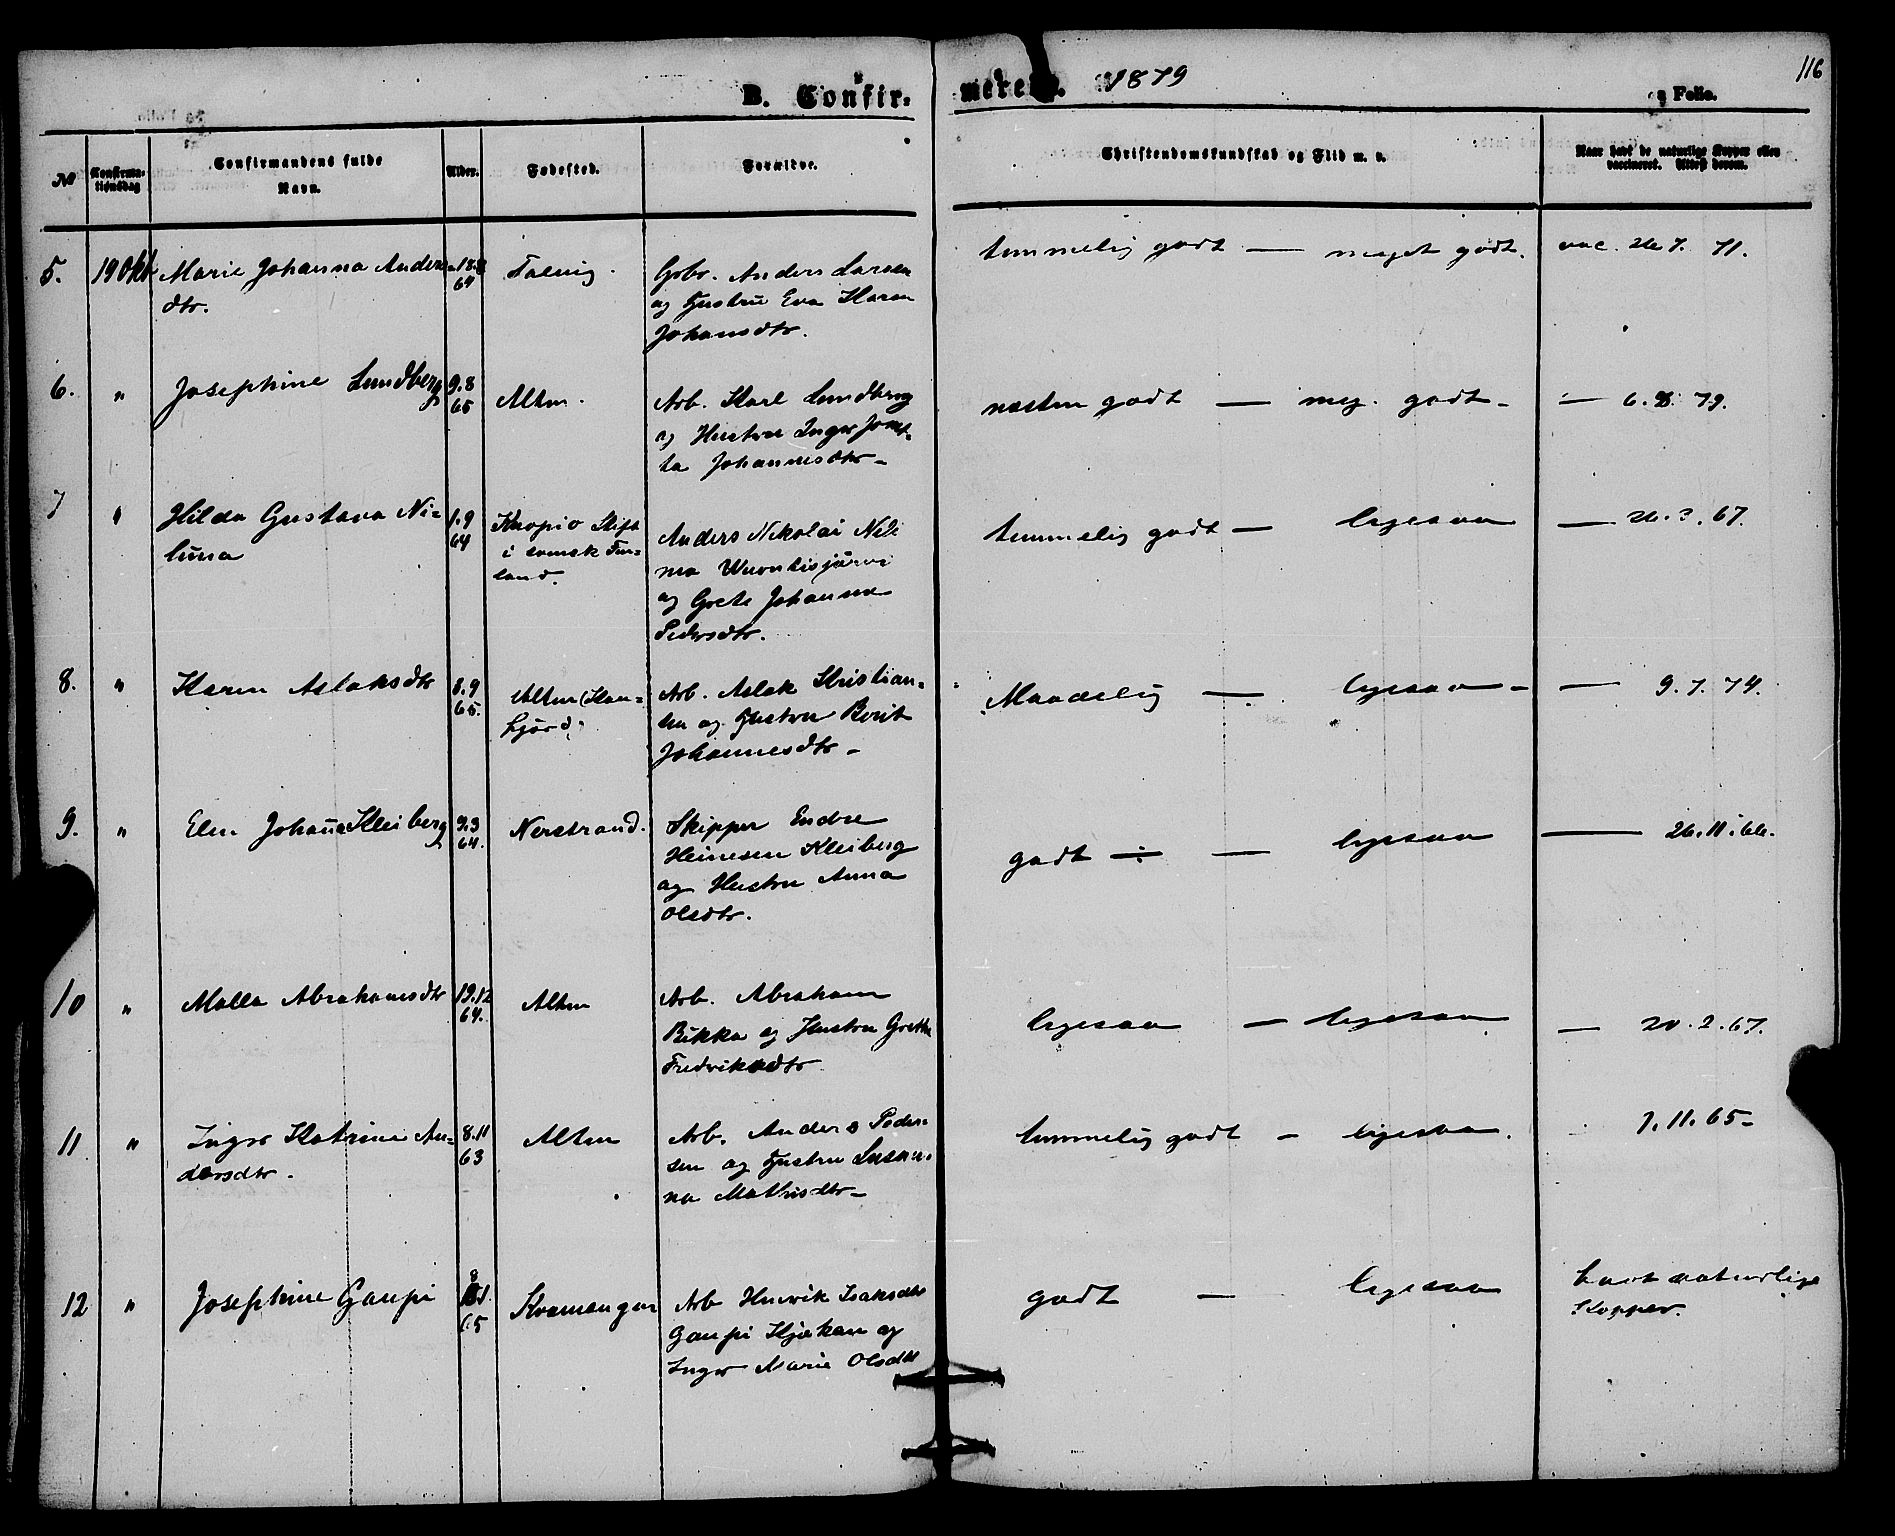 B. Confirmerede. 1879
116
og Folio.
№ Konfirmationsdag Confirmandens fulde Navn. Alder. Fødested. Forældre. Christendomskundskab og Flid m. v. Naar havt de naturlige Kopper eller vaccineret. Attest derom.
5. 19 Okt Marie Johanna Anders 18.8 64 Gbr. Anders Larsen temmelig godt — meget godt. vac. 26 7. 71.
dtr. og Hustru Eva Karen
Johansdtr.
6. " Josephine Lundberg 9.8 65 Alten. Arb. Karl Lundberg næsten godt — meg. godt — 6. 8. 79.
og Hustru Inger
ta Johannesdtr
7 " Hilda Gustava Ni= 1.9 64 Kuopio Stift Anders Nikolai Nili temmelig godt — ligesaa — 67.
luna i svensk Fin= ma
land. og Grete Johanna
Pedersdtr.
8. " Karen Aslaksdtr 8.9 65. Alten (Kaa= Arb. Aslak Kristian= Maadelig — ligesaa — 9. 7. 74.
fjord) sen og Hustru Berit
Johannesdtr
9. " Elen Johana Kleiberg 9.3 64. Nerstrand. Skipper Endre godt — ligesaa — 26. 11. 66.
Heinesen Kleiberg
og Hustru Anna
Olsdtr.
10 " Malla Abrahamsdtr 19.12 64. Alten Arb. Abraham ligesaa — ligesaa — 20. 2. 67.
Bikka og Hustru Grethe
Fredriksdtr
11 " Inger Katrine An= 8.11 63 Alten Arb. Anders Peder= temmelig godt — ligesaa. 7. 11. 65
dersdtr. sen og Hustru Susan=
na Mathisdtr
12 " Josephine Gaupi 65 Kvænangen Arb Henrik Isaksen godt — ligesaa havt naturlige
Gaupi Kjækan og Kopper.
Inger Marie Olsdtr